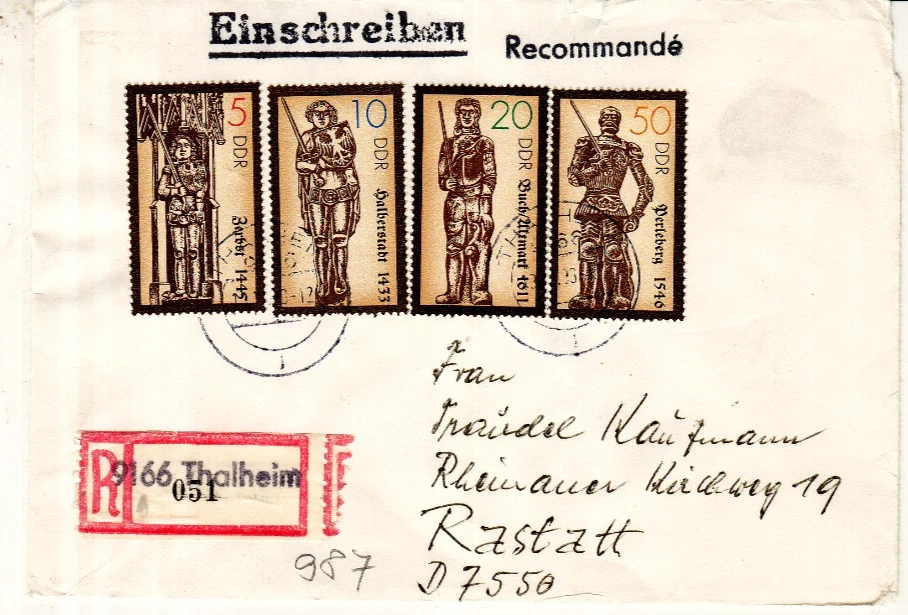 Einschreiben
Recommandé
5 DDR Zerbst 1445
10 DDR Halberstadt 1433
20 DDR Buch/Altmark 1611
50 DDR Perleberg 1546
R 9166 Thalheim
051
987
Frau
Traudel Kaufmann
Rheinauer Kirchweg 19
Rastatt
D 7550